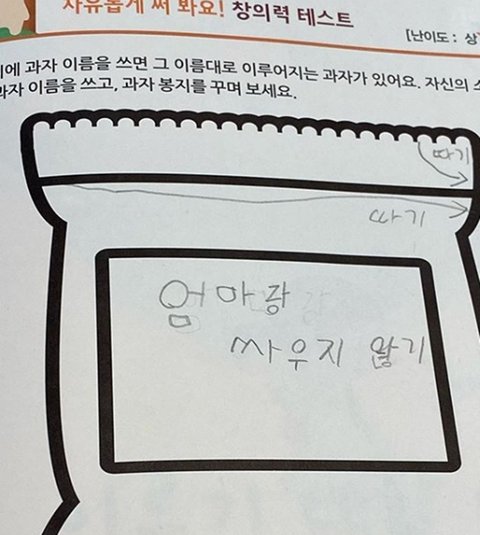 자유롭게 써 봐요! 창의력 테스트
[난이도 : 상
에 과자 이름을 쓰면 그 이름대로 이루어지는 과자가 있어요. 자신의
과자 이름을 쓰고, 과자 봉지를 꾸며 보세요.
따기
따기
엄마랑
싸우지 않기